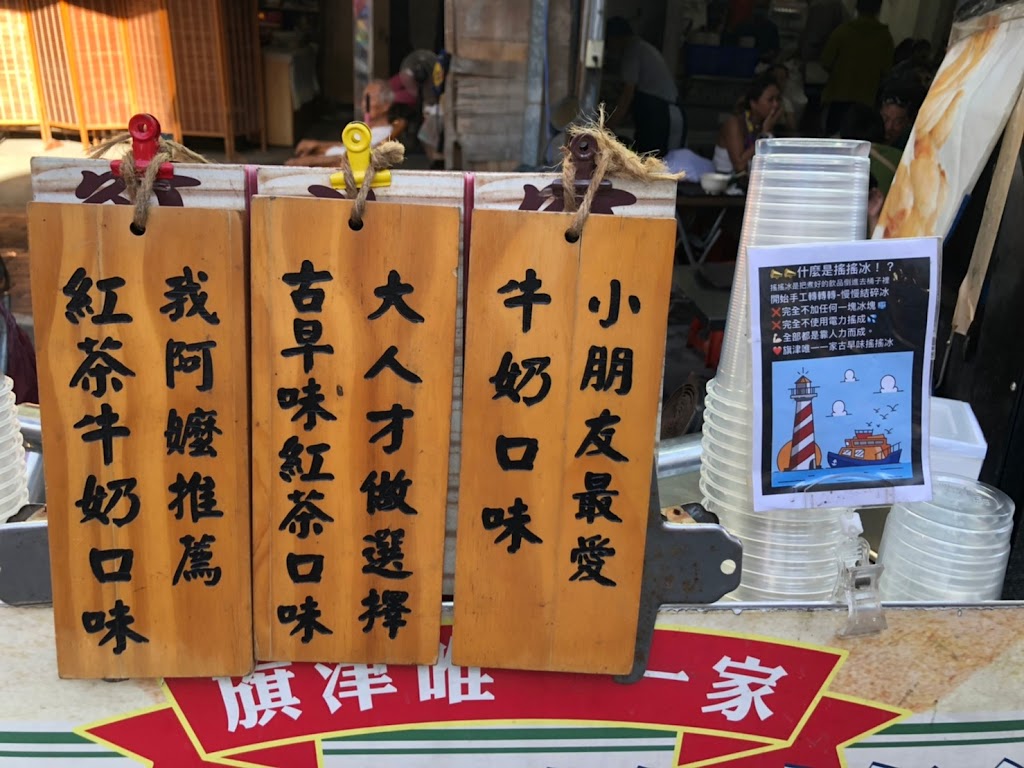 小朋友最愛
牛奶口味
大人才做選擇
古早味紅茶口味
我阿嬤推薦
紅茶牛奶口味
什麼是搖搖冰！？
搖搖冰是把煮好的飲品倒進去桶子裡
開始手工轉轉轉~慢慢結碎冰
❌完全不加任何一塊冰塊
❌完全不使用電力搖成
全部都是靠人力而成。
旗津唯一一家古早味搖搖冰
旗津唯一一家